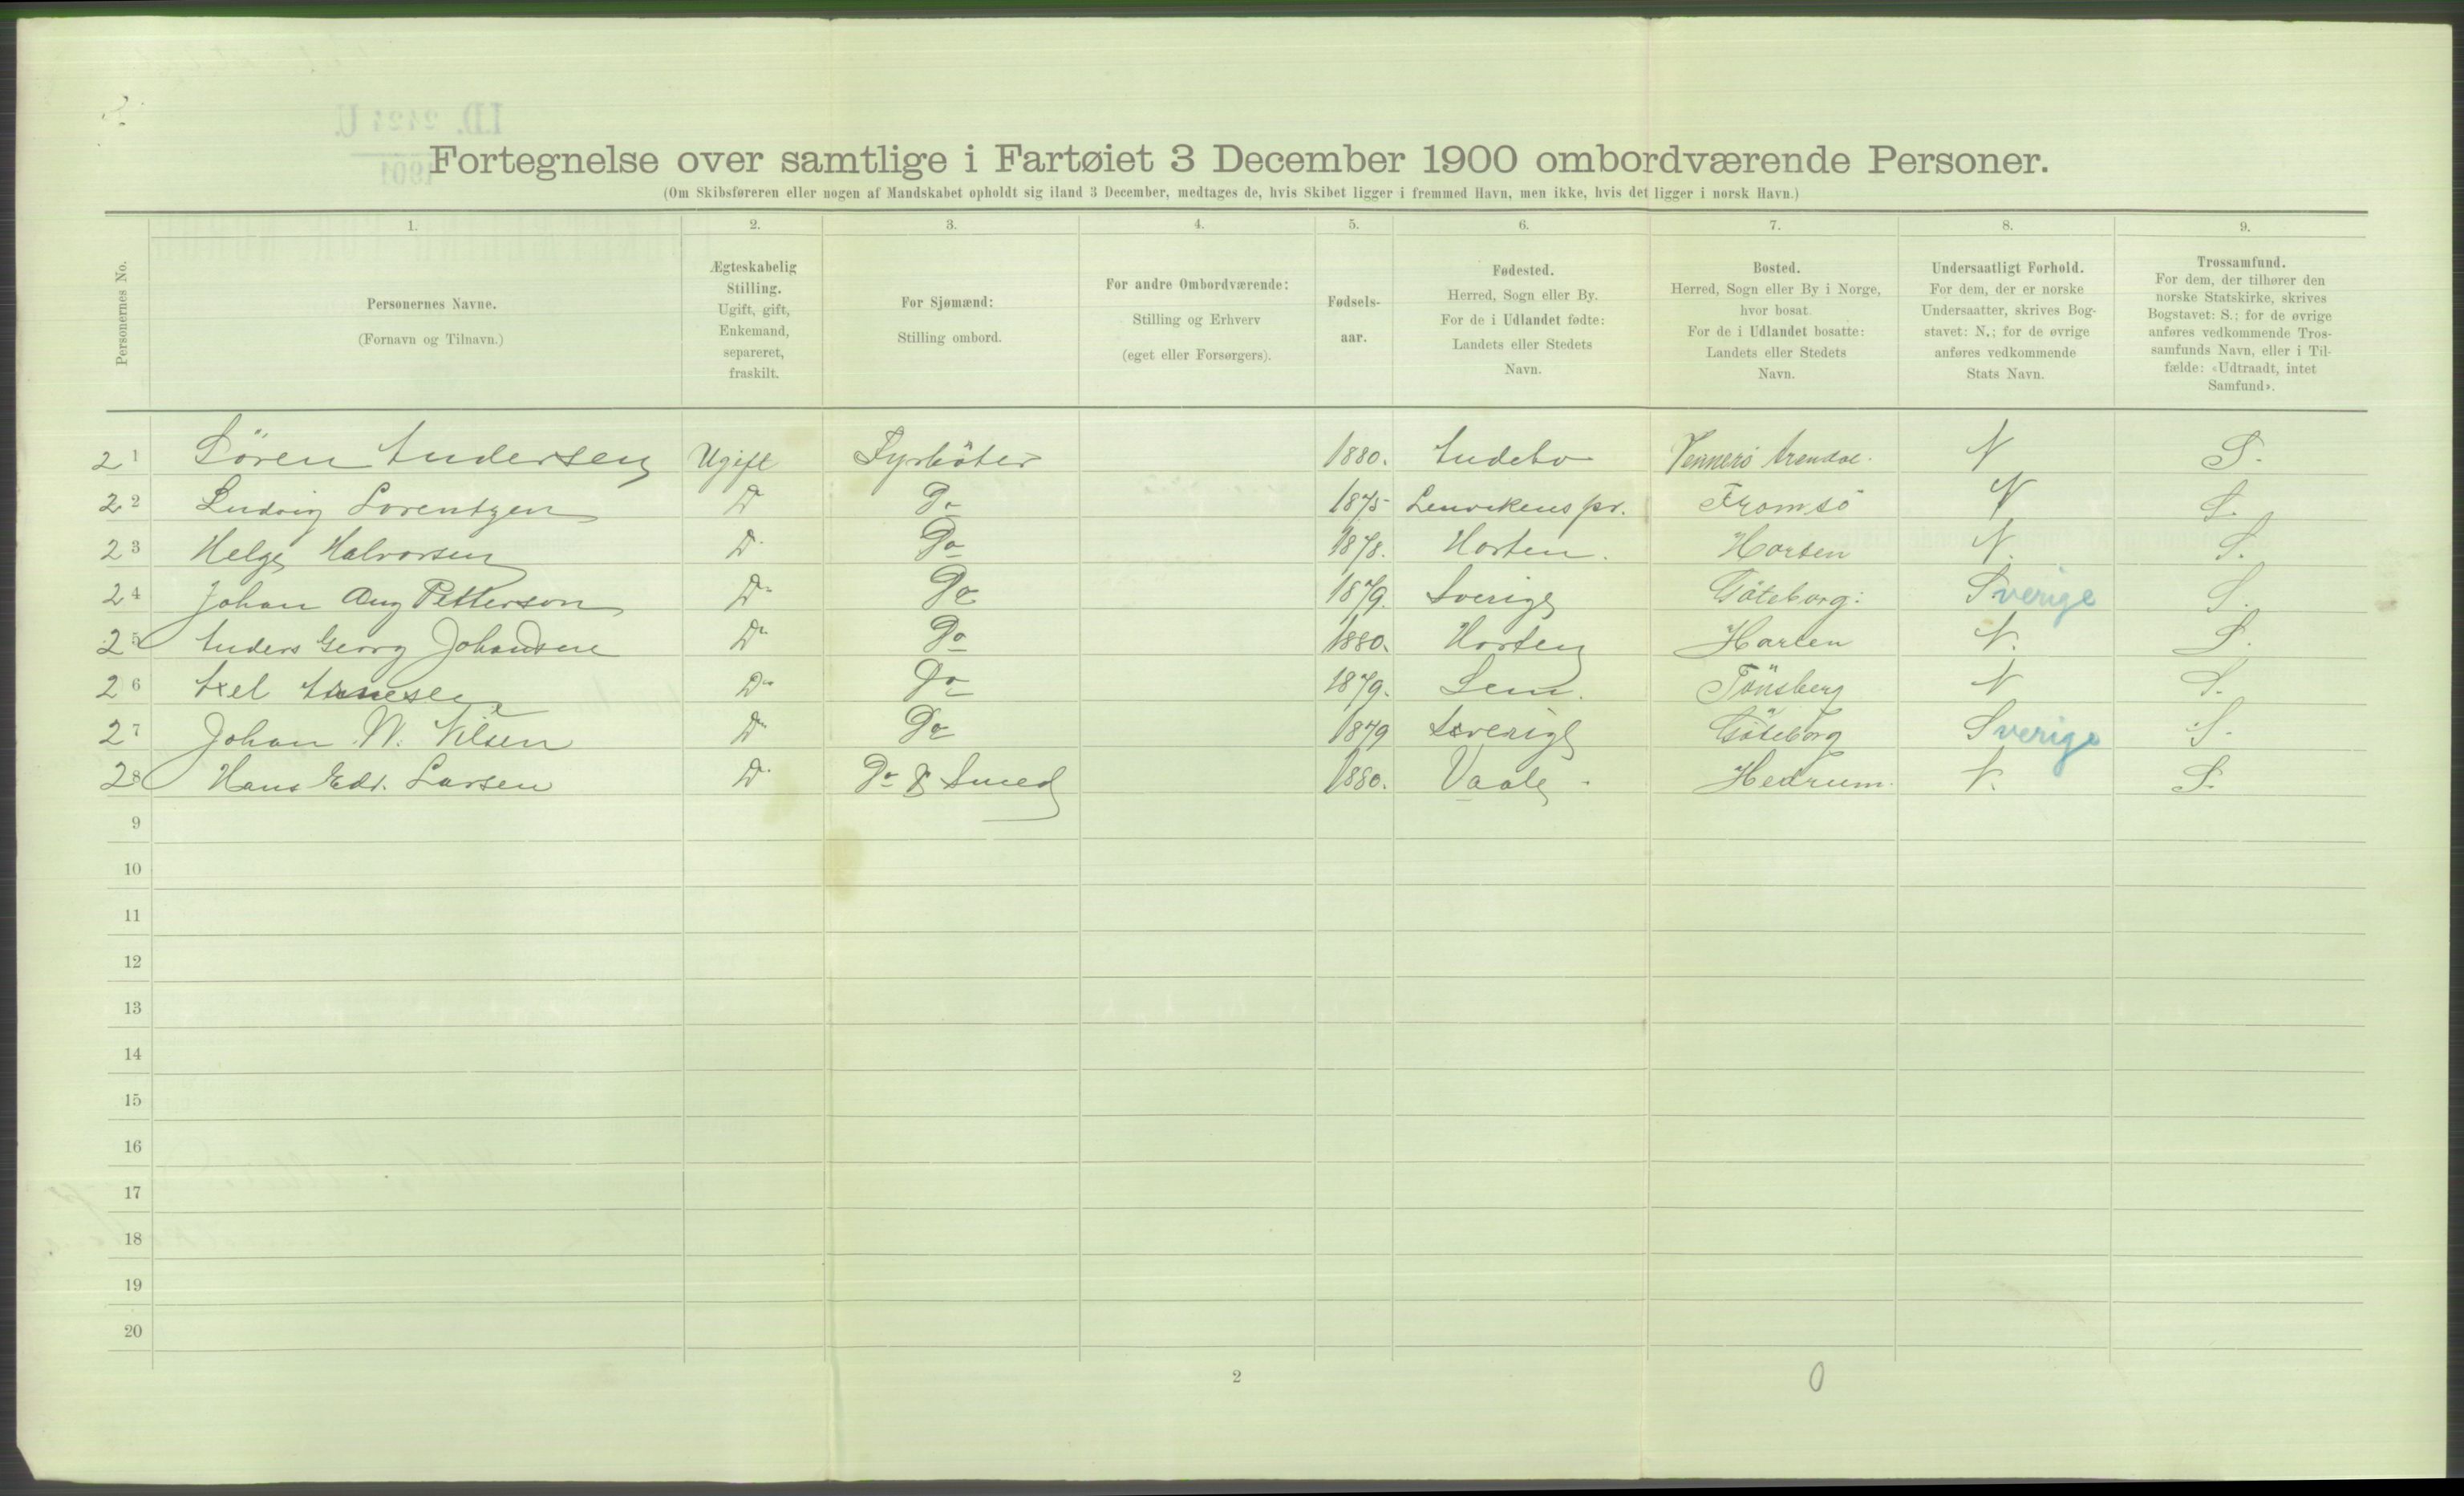 Fortegnelse over samtlige i Fartøiet 3 December 1900 ombordværende Personer.
(Om Skibsføreren eller nogen af Mandskabet opholdt sig iland 3 December, medtages de, hvis Skibet ligger i fremmed Havn, men ikke, hvis det ligger i norsk Havn.)
Personernes No.
1.
Personernes Navne.
(Fornavn og Tilnavn.)
2.
Ægteskabelig
Stilling.
Ugift, gift,
Enkemand,
separeret,
fraskilt.
3.
For Sjømænd:
Stilling ombord.
4.
For andre Ombordværende:
Stilling og Erhverv
(eget eller Forsørgers).
5.
Fødsels-
aar.
6.
Fødested.
Herred, Sogn eller By.
For de i Udlandet fødte:
Landets eller Stedets
Navn.
7.
Bosted.
Herred, Sogn eller By i Norge,
hvor bosat.
For de i Udlandet bosatte:
Landets eller Stedets
Navn.
8.
Undersaatligt Forhold.
For dem, der er norske
Undersaatter, skrives Bog-
stavet: N.; for de øvrige
anføres vedkommende
Stats Navn.
9.
Trossamfund.
For dem, der tilhører den
norske Statskirke, skrives
Bogstavet: S.; for de øvrige
anføres vedkommende Tros-
samfunds Navn, eller i Til-
fælde: «Udtraadt, intet
Samfund».
21 Sören Andersen Ugift Fyrböter 1880. Andebo Arendal. N S.
22 Ludvig Lorentzen Do Do 1875 Lenvikens pr. Tromsö N S.
23 Helge Halvorsen Do Do 1878. Horten. Horten N. S.
24 Johan Aug Petterson Do Do 1879. Sverige Göteborg: Sverige S.
25 Anders Georg Johansen Do Do 1880. Horten Horten N. S.
26 Axel Arnesen Do Do 1879. Sem. Tönsberg N S.
27 Johan N. Nilsen Do Do 1879 Sverige Göteborg Sverige S.
28 Hans Edv. Larsen Do Do & Smed 1880. Vaale. Hedrum. N. S.
9
10
11
12
13
14
15
16
17
18
19
20
2
0